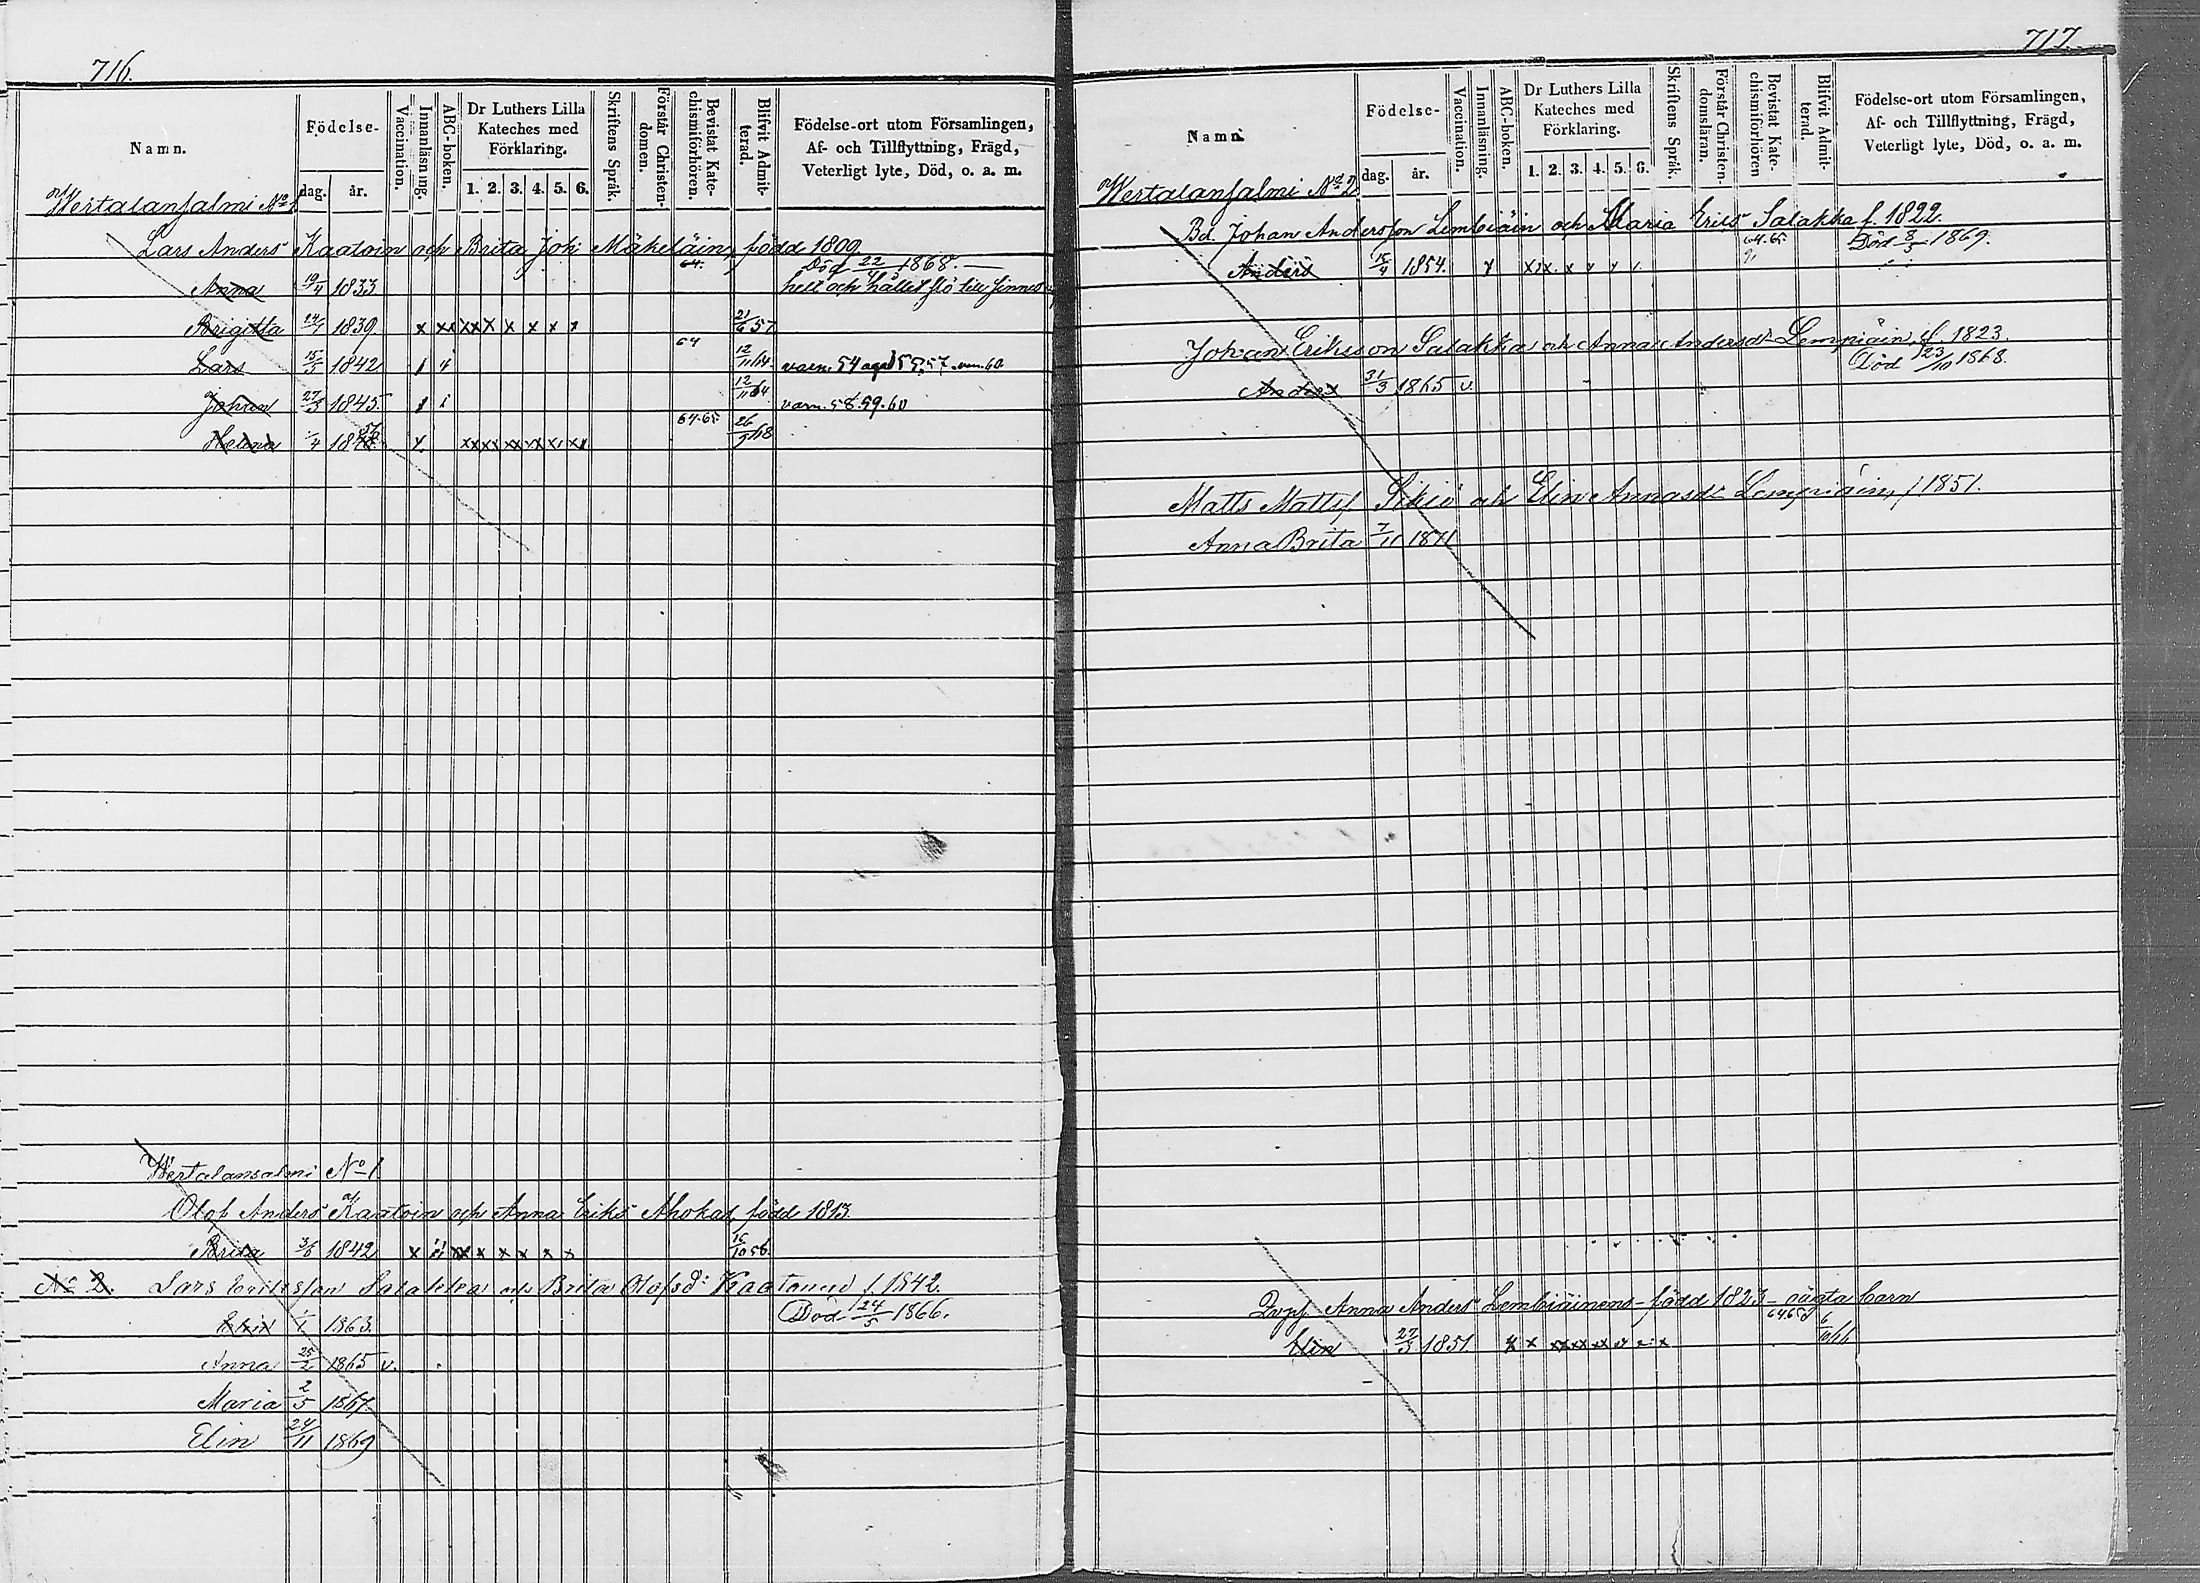 716.
Namn.
Födelse-
dag.
år.
Vaccination.
Innanläsning.
ABC-boken.
Dr Luthers Lilla Kateches med Förklaring.
1. 2. 3. 4. 5. 6.
Skriftens Språk.
Förstår Christen-domen.
Bevistat Kate-chismiförhören.
Blifvit Admit-terad.
Födelse-ort utom Församlingen, Af- och Tillflyttning, Frägd, Veterligt lyte, Död, o. a. m.
Wertalansalmi No 1
Lars Anders Kaatoin och Brita Joh: Mäkeläin, född 1809.
Anna 19/4 1833 64. Död 22/4 1868. hell och hållet slö till sinnes
Brigitta 1839 x x x x x x 21/6 57
Lars 15/5 1842 64 12/11 64
Johan 27/3 1845. 12/11 64 varn. 58. 59. 60
Helena 64-65. 26/9 68
Wertalansalmi No 1.
Olof Anders Kaatoin och Anna Eriks Ahokas, född 1813.
Brita 3/6 1842 x x x x x x 15/10 56
No 2. Lars Eriksson Salakka och Brita Olofsd: f. 1842.
1863. Död 24/5 1866.
Anna 25/2 1865 v.
Maria 2/5 1867.
Elin 24/11 1869
717.
Namn.
Födelse-
dag.
år.
Vaccination.
Innanläsning.
ABC-boken.
Dr Luthers Lilla Kateches med Förklaring.
1. 2. 3. 4. 5. 6.
Skriftens Språk.
Förstår Christen-domsläran.
Bevistat Kate-chismiförhören
Blifvit Admit-terad.
Födelse-ort utom Församlingen, Af- och Tillflyttning, Frägd, Veterligt lyte, Död, o. a. m.
Wertalansalmi No 2
Bd. Johan Andersson Lembiäin och Maria Eriks Salakka f. 1822.
Anders 15/4 1854. 64.65. Död 8/5 1869.
Johan Eriksson Salakka och Anna Andersdr Lempiäin, f. 1823.
Anders 31/3 1865 v. Död 23/10 1868.
Matts Matts och Elin Lempiäin, f 1851.
Anna Brita 7/11 1871
Anna Anders Lembiäinens född 1823 - oägta barn
Elin 27/3 1851. 64 65 6/10 66